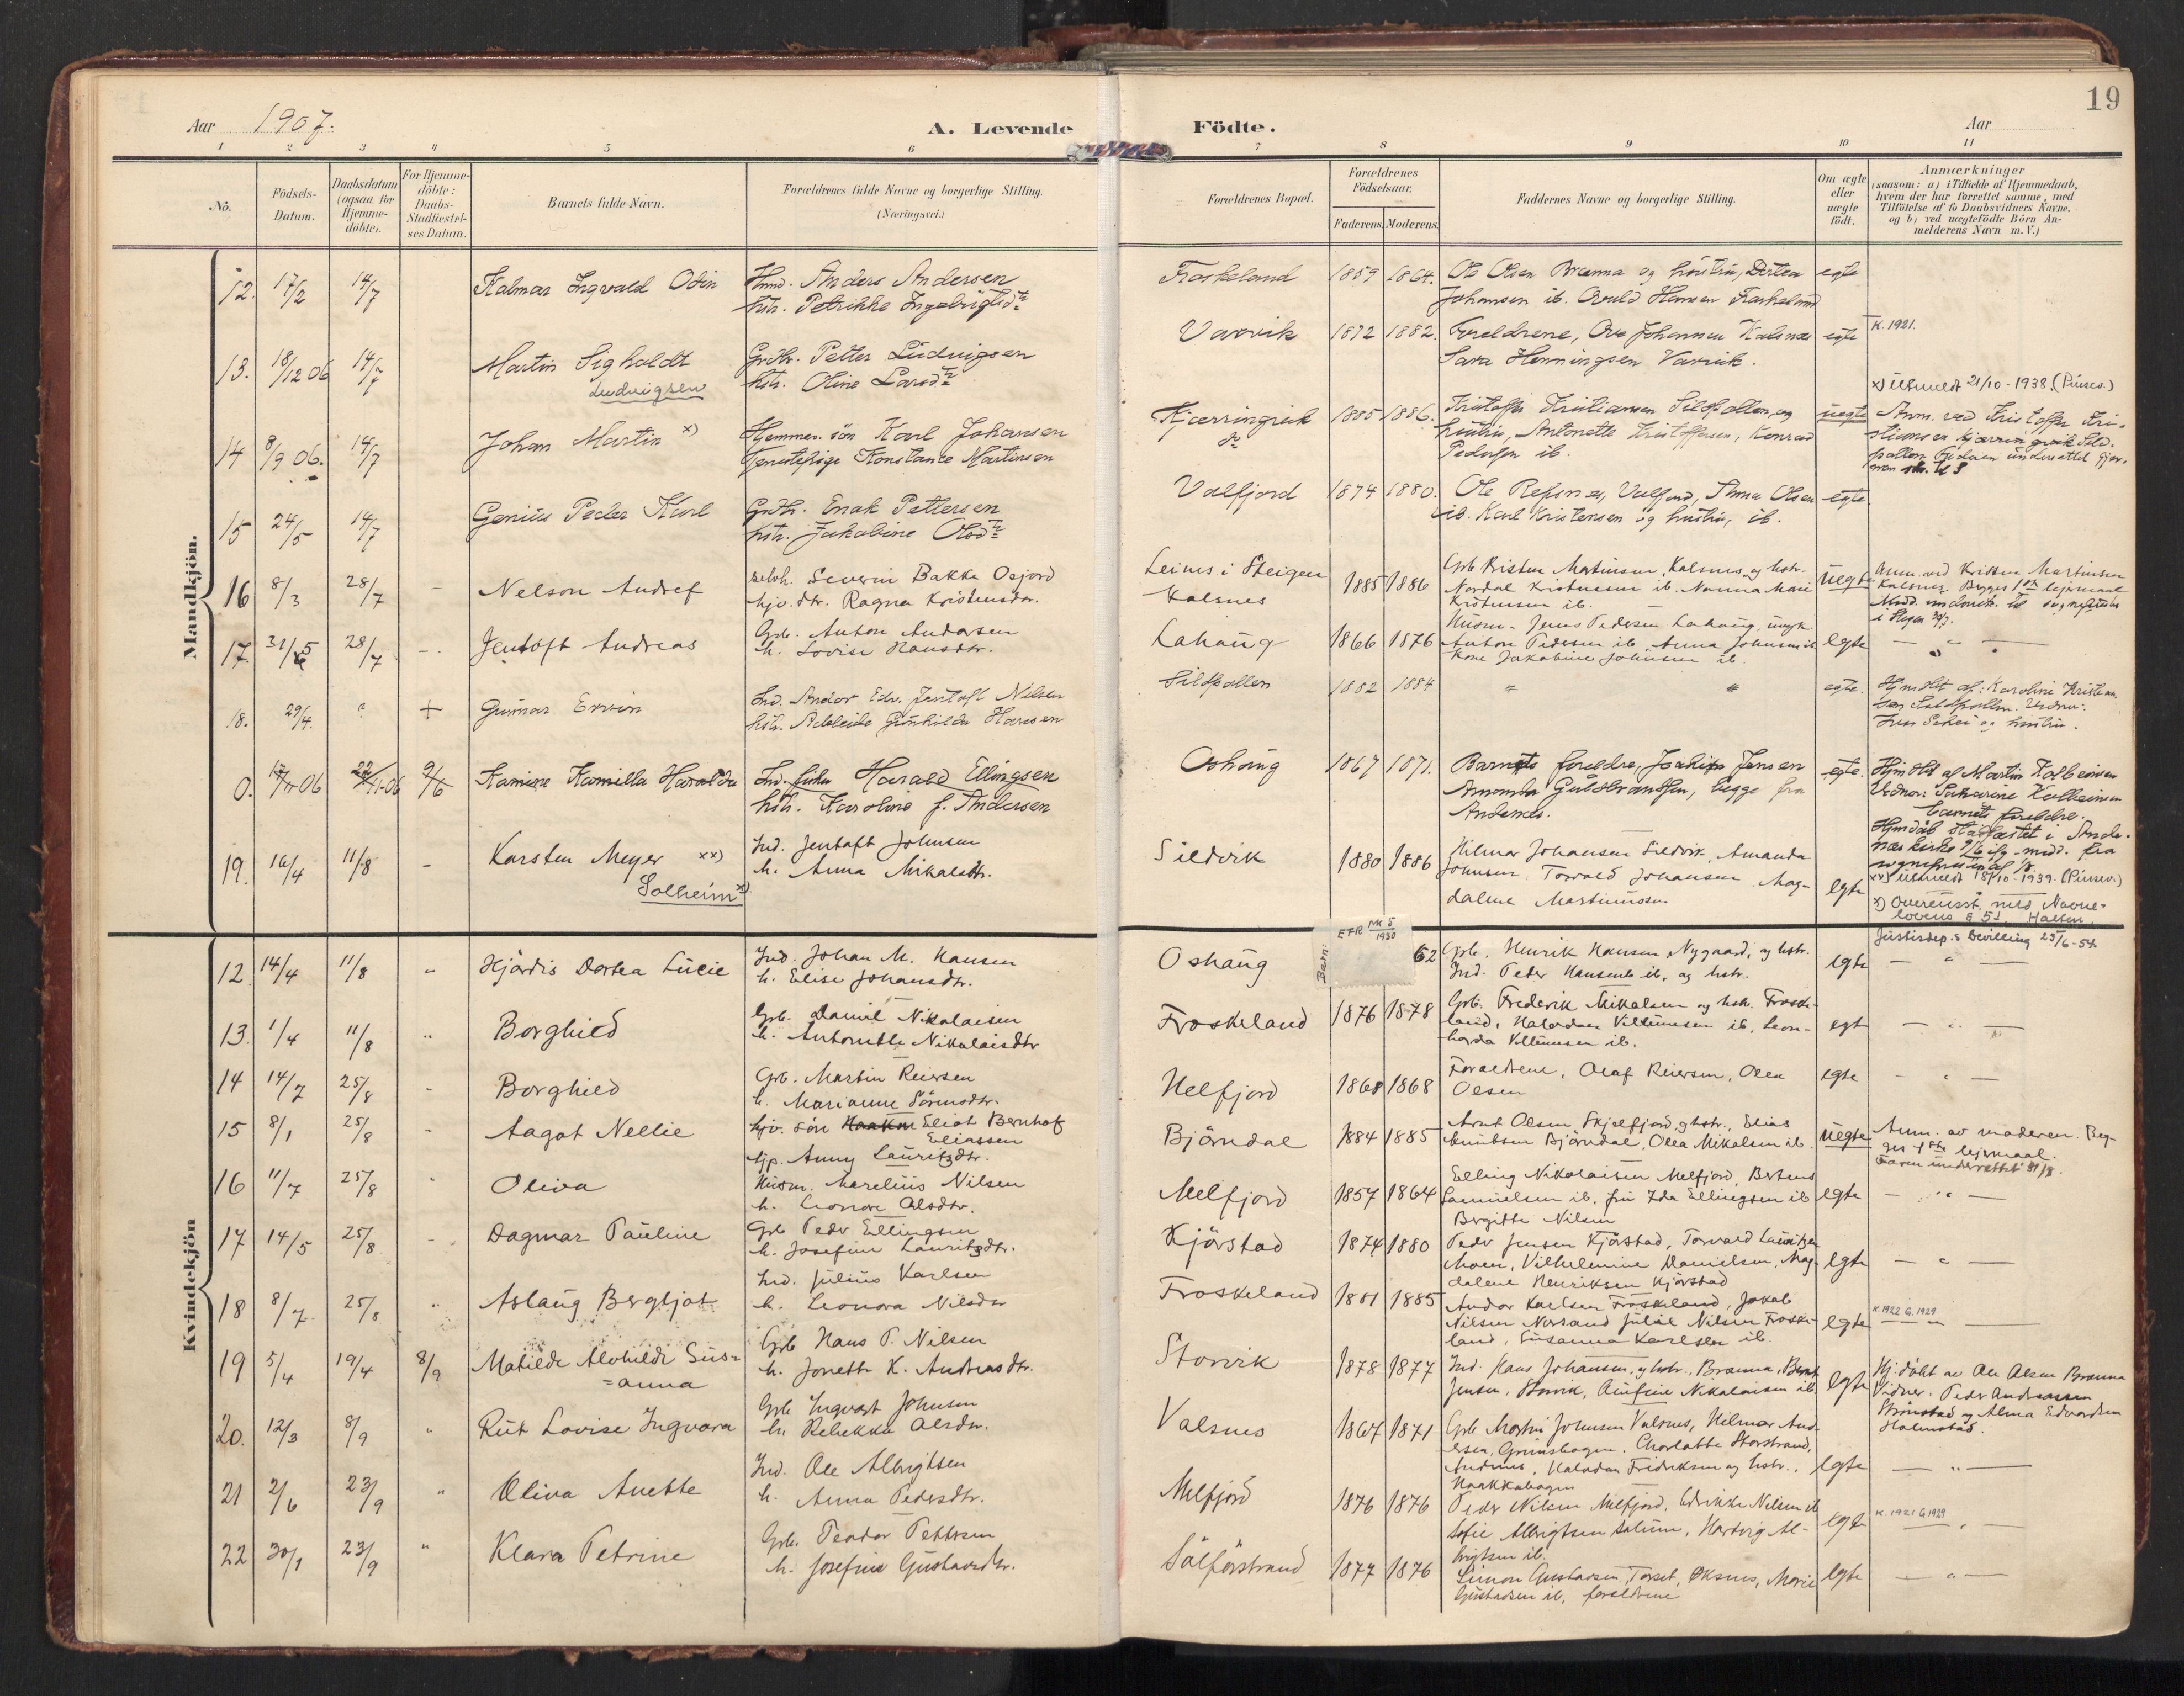 19
Aar 1907.
A. Levende Födte.
Aar
1 2 3 4 5 6 7 8 9 10 11
No.
Födsels-
Datum.
Daabsdatum
(ogsaa for
Hjemme-
döbte).
For Hjemme-
döbte:
Daabs-
Stadfæstel-
ses Datum.
Barnets fulde Navn.
Forældrenes fulde Navne og borgerlige Stilling.
(Næringsvei.)
Forældrenes Bopæl.
Forældrenes
Födselsaar.
Faderens. Moderens.
Faddernes Navne og borgerlige Stilling.
Om ægte
eller
uægte
födt.
Anmærkninger
(saasom: a) i Tilfælde af Hjemmedaab,
hvem der har forrettet samme, med
Tilföielse af to Daabsvidners Navne,
og b) ved uægtefödte Börn An-
melderens Navn m. V.)
Mandkjön.
12. 17/2 14/7 Halmar Ingvald Odin
Anders Andersen
hstr. Petrikke
Froskeland 1859 1864.
Ole Olsen Brænna og hustru, Dortea
Johansen ib. Hansen Froskeland
egte
13. 18/12 06 14/7 Martin Sigholdt
Ludvigsen
Petter Ludvigsen
hstr. Oline Larsdtr
Varvik 1872 1882.
Foreldrene, Ove Johannesen Kalsnes
Sara Henningsen Varvik.
egte
K. 1921.
14 8/9 06. 14/7 Johan Martin x)
sön Karl Johansen
Konstance Martinsen
Kjærringvik 1885 1886.
Kristoffer Kristiansen Sildpollen, og
hustru, Antonette Kristoffersen, Konrad
Pedersen ib.
uegte
x) Utmeldt 21/10 - 1938. (Pinsev.)
Anm. ved Kristoffer Kri-
stiansen
15 24/5 14/7 Genius Peder Karl
Enok Pettersen
hstr. Jakobine Olsdtr
Valfjord 1874 1880.
Ole Refsnes, Valfjord, Olsen
ib. Karl Kristensen og hustru, ib.
egte
16 8/3 28/7 - Nelson Andref
Severin Bakke Osjord
hjv. dtr. Ragna Kristensdtr.
Leines i Steigen
Kalsnes
1885 1886
Grb. Kristen Martinsen, Kalsnes og hstr.
Nordal Kristensen ib. Nanna Marie
Kristensen ib.
Uegte
Anm. ved Kristen Martinsen
Kalsnes. Begges 1ste lejermaal
17. 31/5 28/7 - Jentoft Andreas
Grb. Anton Andersen
h. Lovise Hansdtr.
Lahaug 1866 1876
Jens Pedersen Lahaug,
Anton Pedersen ib, Anna Johnsen ib
Kone Jakobine Johnsen ib
egte
18. 29/4. ? + Gunnar Ervin
Ind. Andor Edv. Jentoft Nilsen
hstr. Adeleide Gunhilda Hansen
Sildpollen 1882 1884
" "
egte.
Hjmdbt af: Karoline Kristian-
sen Sildpollen.
og hustru.
0. 06 22/11-06 9/6 Kamine Kamilla Haralda
Ind. fisker Harald Ellingsen
hstr. Karoline f. Andersen
Oshaug 1867 1871.
Barnets foreldre, Joakim Jensen
Amanda Guldbrandsen, begge fra
Andenes.
egte.
Hjmdbt af Martin Kolbeinsen
Vidner: Katarine Kolbeinsen
barnets foreldre.
Hjmdåb stadfæstet i Ande-
nes kirke 9/6 ifg. medd. fra
19. 16/4 11/8 - Karsten Meyer xx)
Solheim x)
Ind. Jentoft Johnsen
h. Anna Mikalsdtr.
Sildvik 1880 1886
Hilmar Johansen Sildvik, Amanda
Johnsen, Torvald Johansen, Mag-
dalene Martinussen
egte
xx) Utmeldt 18/10 - 1939. (Pinsev.)
x) Overensst. med Navne-
lovens § 51. Halten
Justisdep.s bevilling 25/6-54.
Kvindekjön
12 14/4 11/8 " Hjördis Dortea Lucie
Ind. Johan M. Hansen
h. Elise Johansdtr.
Oshaug
Barn: EFR NK 5 1930
62
Grb. Henrik Hansen, Nygaard, og hstr.
Ind. Peder Hansen ib, og hstr.
egte
— " —
13. 1/4 11/8 " Borghild
Grb. Daniel Nikolaisen
h. Antonette Nikolaisdtr
Froskeland 1876 1878
Grb. Frederik Mikalsen og hstr. Froske-
land, Halvdan Villumsen ib, Leon-
harda Villumsen ib.
egte
— " —
14 14/7 25/8 - Borghild
Grb. Martin Reiersen
h. Marianne Sörensdtr.
Melfjord 1868 1868
Foreldrene, Olaf Reiersen, Olea
Olsen
egte
— " —
15 8/1 25/8 - Aagot Nellie
hjv. sön Haakon Eliot Bernhof
Eliassen
hjp. Anny Lauritzdtr.
Björndal 1884 1885
Arnt Olsen, Skjelfjord, og hstr., Elias
Björndal, Olea Mikalsen ib.
Uegte
Anm. av moderen. Beg-
ges 1ste lejermaal.
Faren underrettet 31/8.
16 11/7 25/8 - Oliva
Husm. Marelius Nilsen
h. Leonore Olsdtr.
Melfjord 1857 1864
Elling Nikolaisen Melfjord, Bertens
Samuelsen ib, fru Ida Ellingsen ib
Bergitte Nilsen
egte
— " —
17 14/5 25/8 - Dagmar Pauline
Grb Peder Ellingsen
h. Josefine Lauritzdtr.
Kjörstad 1874 1880
Peder Jensen Kjörstad, Torvald Lauritzen
Moen, Vilhelmine Danielsen, Mag-
dalene Henriksen Kjörstad
egte
— " —
18 8/7 25/8 " Aslaug Bergljot
Ind. Julius Karlsen
h. Leonora Nilsdtr
Froskeland 1881 1885
Andor Karlsen Froskeland, Jakob
Nilsen Nersand Julie Nilsen Froske-
land, Susanna Karlsen ib.
egte
K. 1922 G. 1929
— " —
19 5/4 19/4 8/9 Matilde Alvhilde Sus=
=anna
Grb Hans P. Nilsen
h. Jonette K. Andreasdtr.
Storvik 1878 1877
Ind. Hans Johansen, og hstr., Brænna, Bernt
Jensen, Storvik, Nikolaisen ib
egte
Hj. döbt av Ole Olsen Brænna
Vidner. Peder Andreassen
Strönstad og Alma Edvardsen
Holmstad.
20. 12/3 8/9 " Rut Lovise Ingvara
Grb Ingvart Johnsen
h. Rebekka Olsdtr.
Valsnes 1867 1871
Grb Martin Johnsen Valsnes, Hilmar And-
ersen, Charlotte Storstrand,
Andenes, Halvdan Fredriksen og hstr.,
Haakkahagen
egte
— " —
21 2/6 23/9 " Oliva Anette
Ind. Ole Albrigtsen
h. Anna Pedersdtr.
Melfjord 1876 1876
Peder Nilsen Melfjord, Nilsen ib
Sofie Albrigtsen Hartvig Al-
brigtsen ib.
egte
K. 1921 G 1929
— " —
22 30/1 23/9 " Klara Petrine
Grb. Peodor Pettersen
h. Josefine Gustavsdtr.
1877 1876
Simon Gustavsen, Torset, Öksnes, Marie
Gustavsen ib, foreldrene
egte
— " —